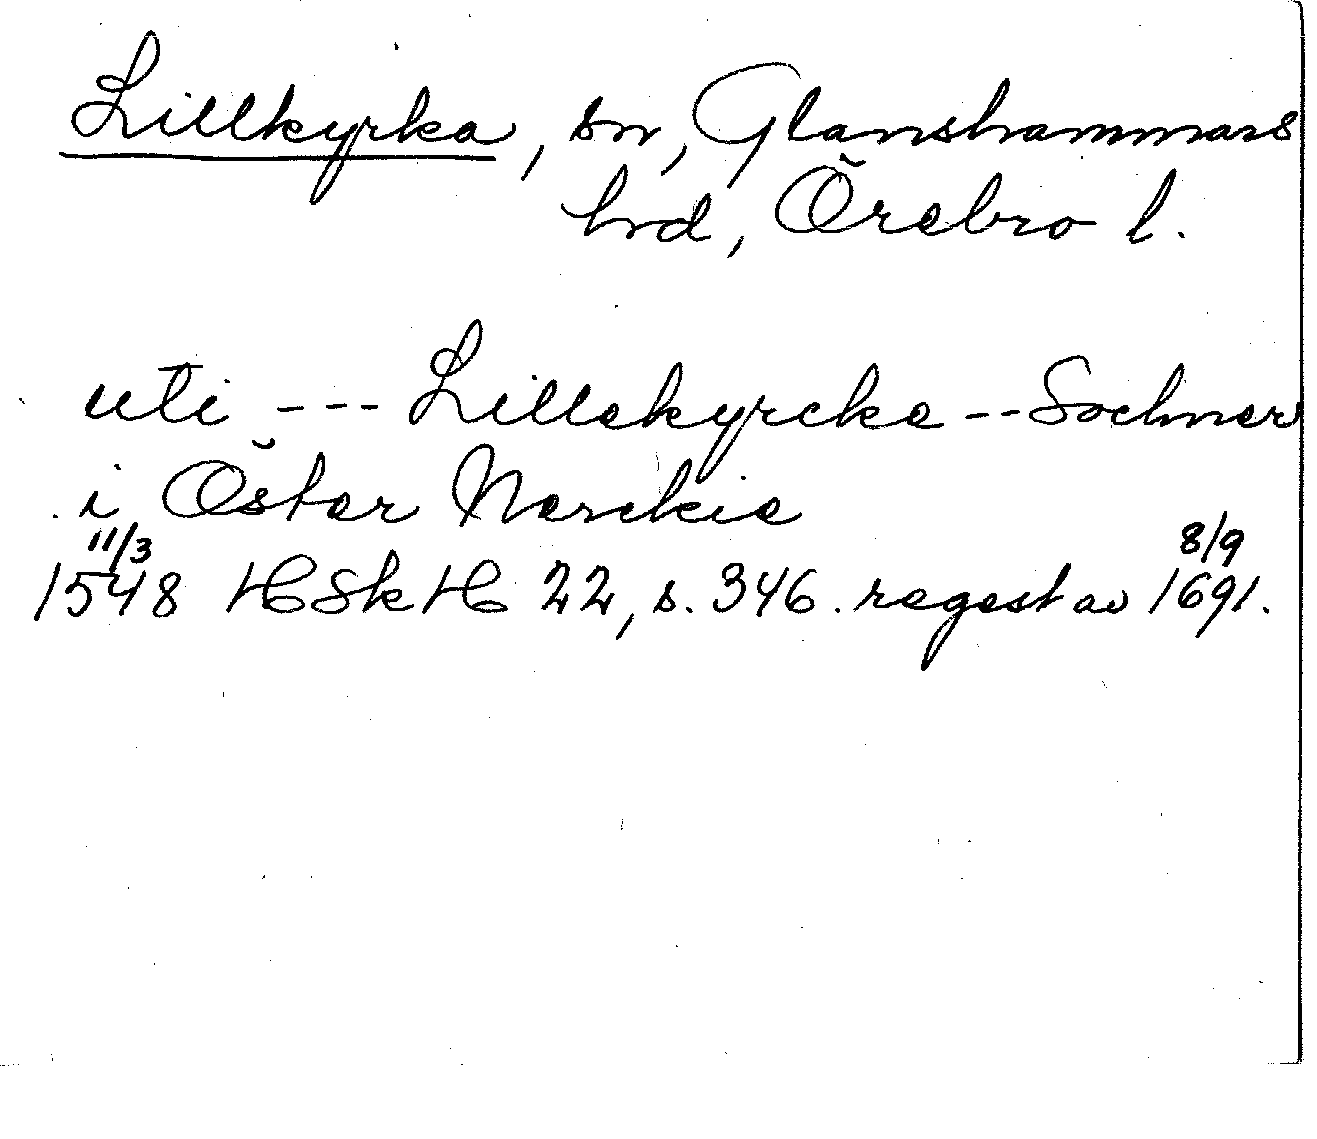 Lillkyrka, sn, Glanshammars
hrd, Örebro l.
uti --- Lillekyrcke -- Sochner
i Öster Nerckie
11/3 8/9
1548 HSkH 22, s. 346. regest av 1691.